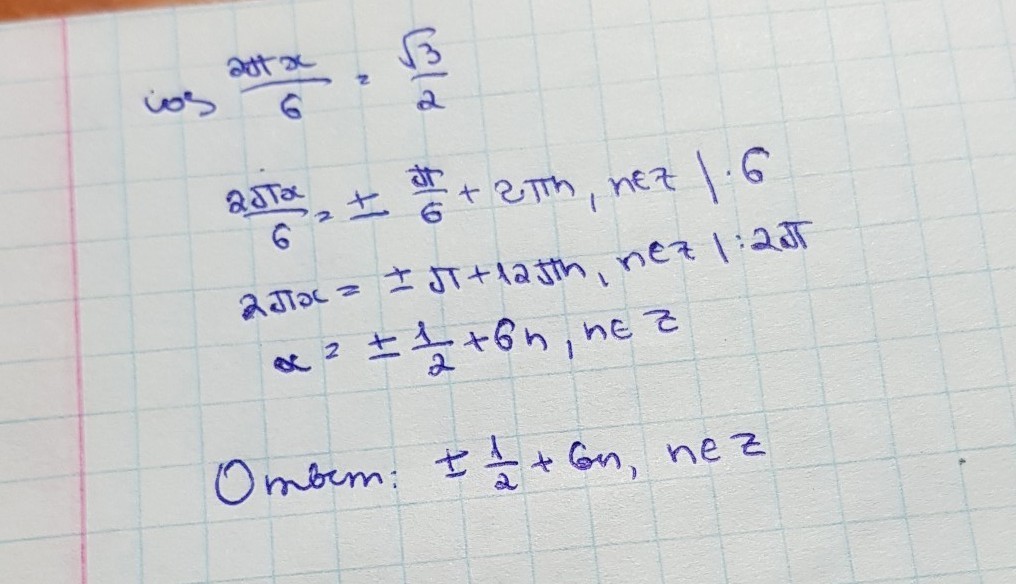 cos 2πx/6 = √3/2
2πx/6 = ± π/6 + 2πn, n∈z | ·6
2πx = ± π + 12πn, n∈z | :2π
x = ± 1/2 + 6n, n∈z
Ответ: ± 1/2 + 6n, n∈z